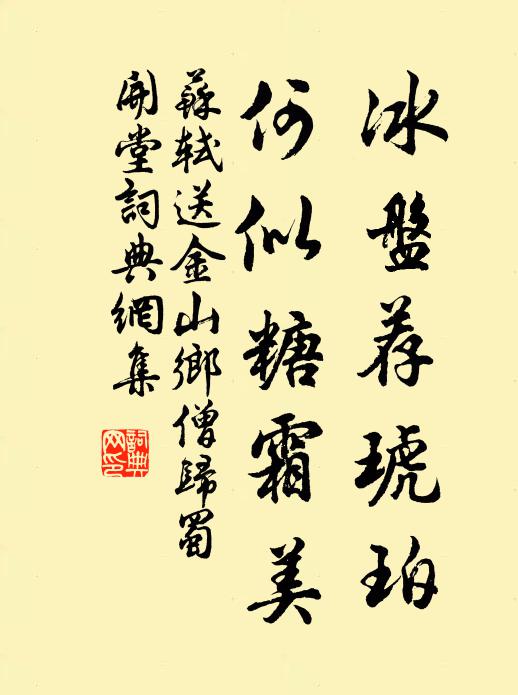 冰盤荐琥珀
何似糖霜美
蘇軾送金山鄉僧歸蜀
開堂詞典網集
詞典網印